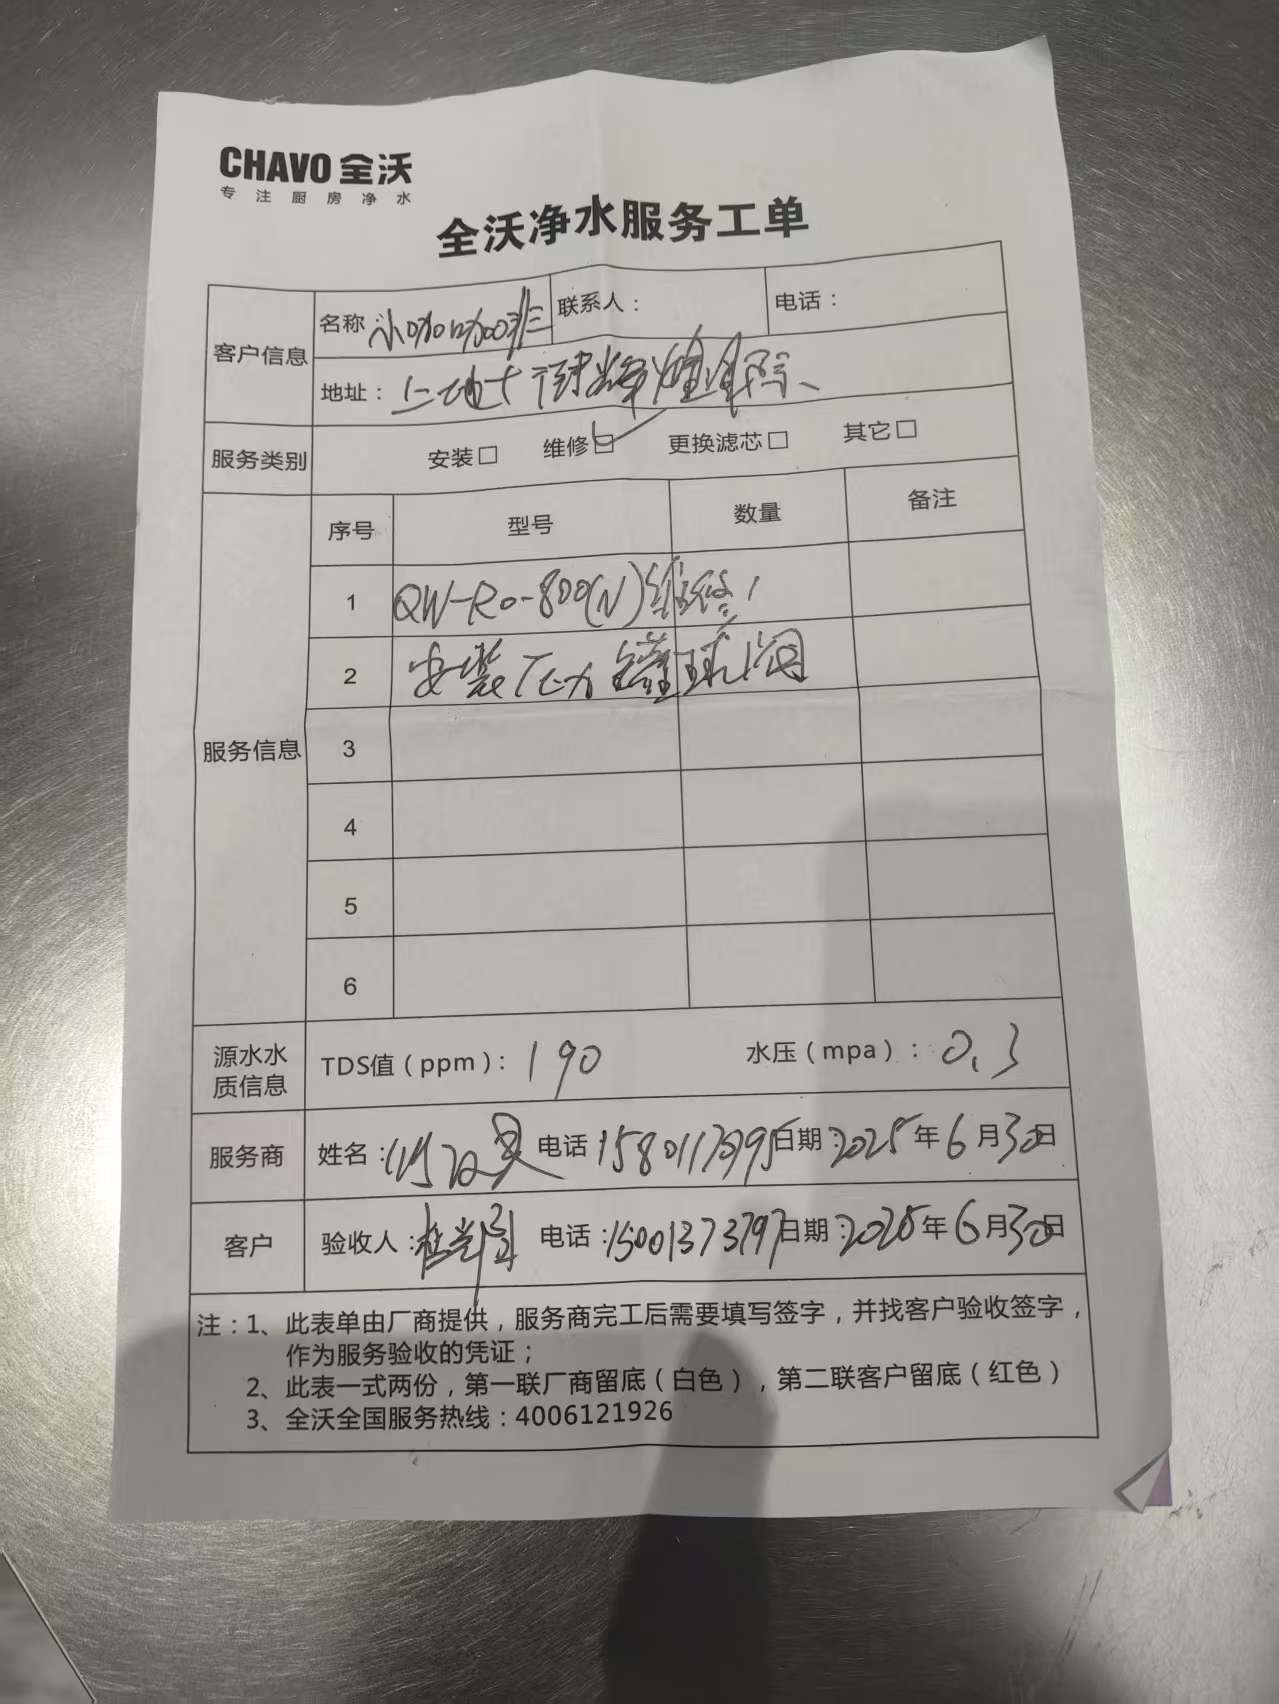 CHAVO 全沃
专注厨房净水
全沃净水服务工单
客户信息 名称 小咖咖啡 联系人： 电话：
地址：
服务类别 安装□ 维修☑ 更换滤芯□ 其它□
服务信息 序号 型号 数量 备注
1 QW-RO-800(N)维修 1
2 安装压力罐球阀
3
4
5
6
源水水质信息 TDS值（ppm）：190 水压（mpa）：0.3
服务商 姓名： 电话 日期：2025年6月30日
客户 验收人： 电话：15001373797 日期：2025年6月30日
注：1、此表单由厂商提供，服务商完工后需要填写签字，并找客户验收签字，
作为服务验收的凭证；
2、此表一式两份，第一联厂商留底（白色），第二联客户留底（红色）
3、全沃全国服务热线：4006121926